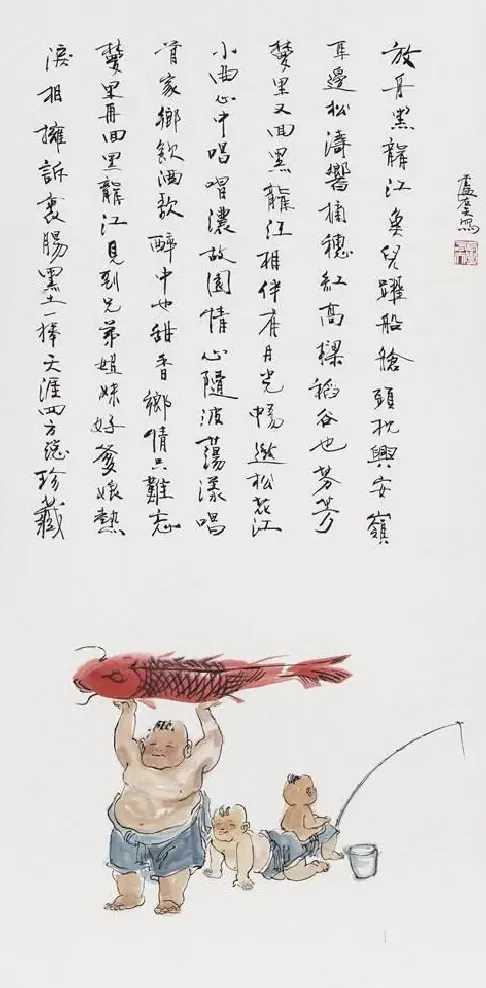 放舟黑龍江魚兒躍船艙頭枕興安嶺
耳邊松濤響摘穗紅高粱稻谷也芬芳
夢里又回黑龍江相伴有月光暢遊松花江
小曲心中唱唱濃故園情心隨波蕩漾唱
首家鄉飲酒歌醉中也甜香鄉情只難忘
夢里再回黑龍江見到兄弟姐妹好爹娘熱
淚相擁訴衷腸黑土一捧天涯四方總珍藏